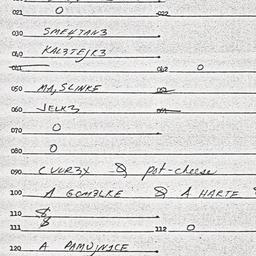 021 O 022
030 SMEHTAN3
040 KAL3TEJR3
041 042 O
050 MA, SLINKE 052
060 JELK3
070 O
080 O
090 CVUR3X & pot-cheese
100 A GOM3LKE & A HARTE
110 &
111 & 112 O
120 A PAMUJNICE